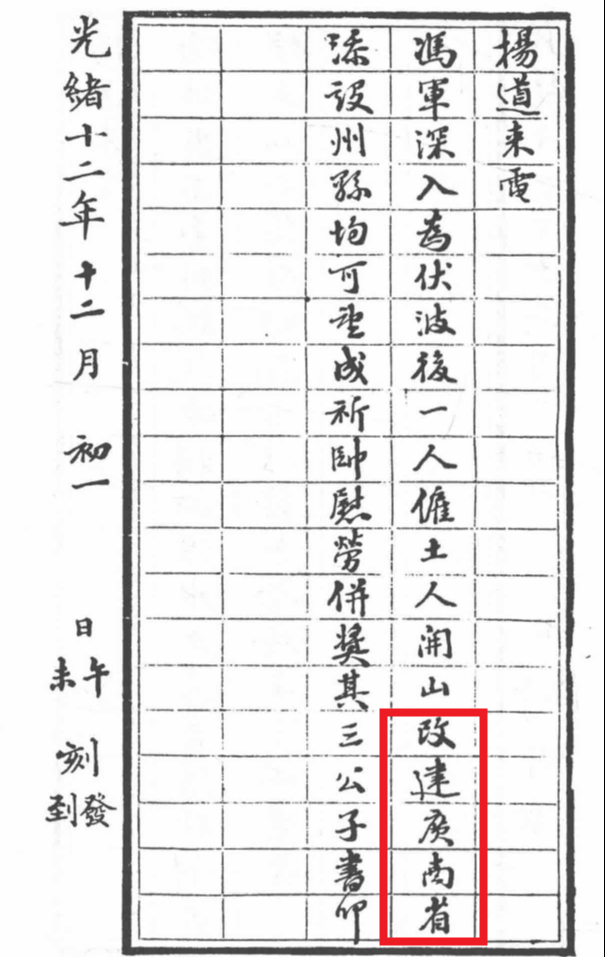 揚道来電
馮軍深入為伏波後一人僱土人開山改建廣南省
添設州縣均可望成祈帥慰勞併獎其三公子書叩
光緒十二年十二月初一日午刻發
未到